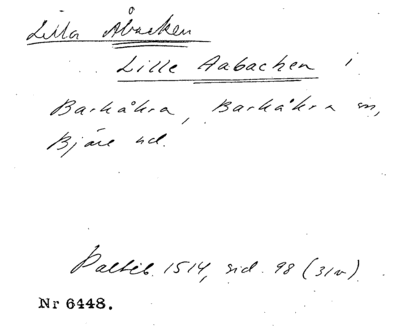 Lilla Åbacken
Lille Aabacken i
Barkåkra, Barkåkra sn,
Bjäre hd.
Palteb. 1514, sid. 98 (31v)
Nr 6448.